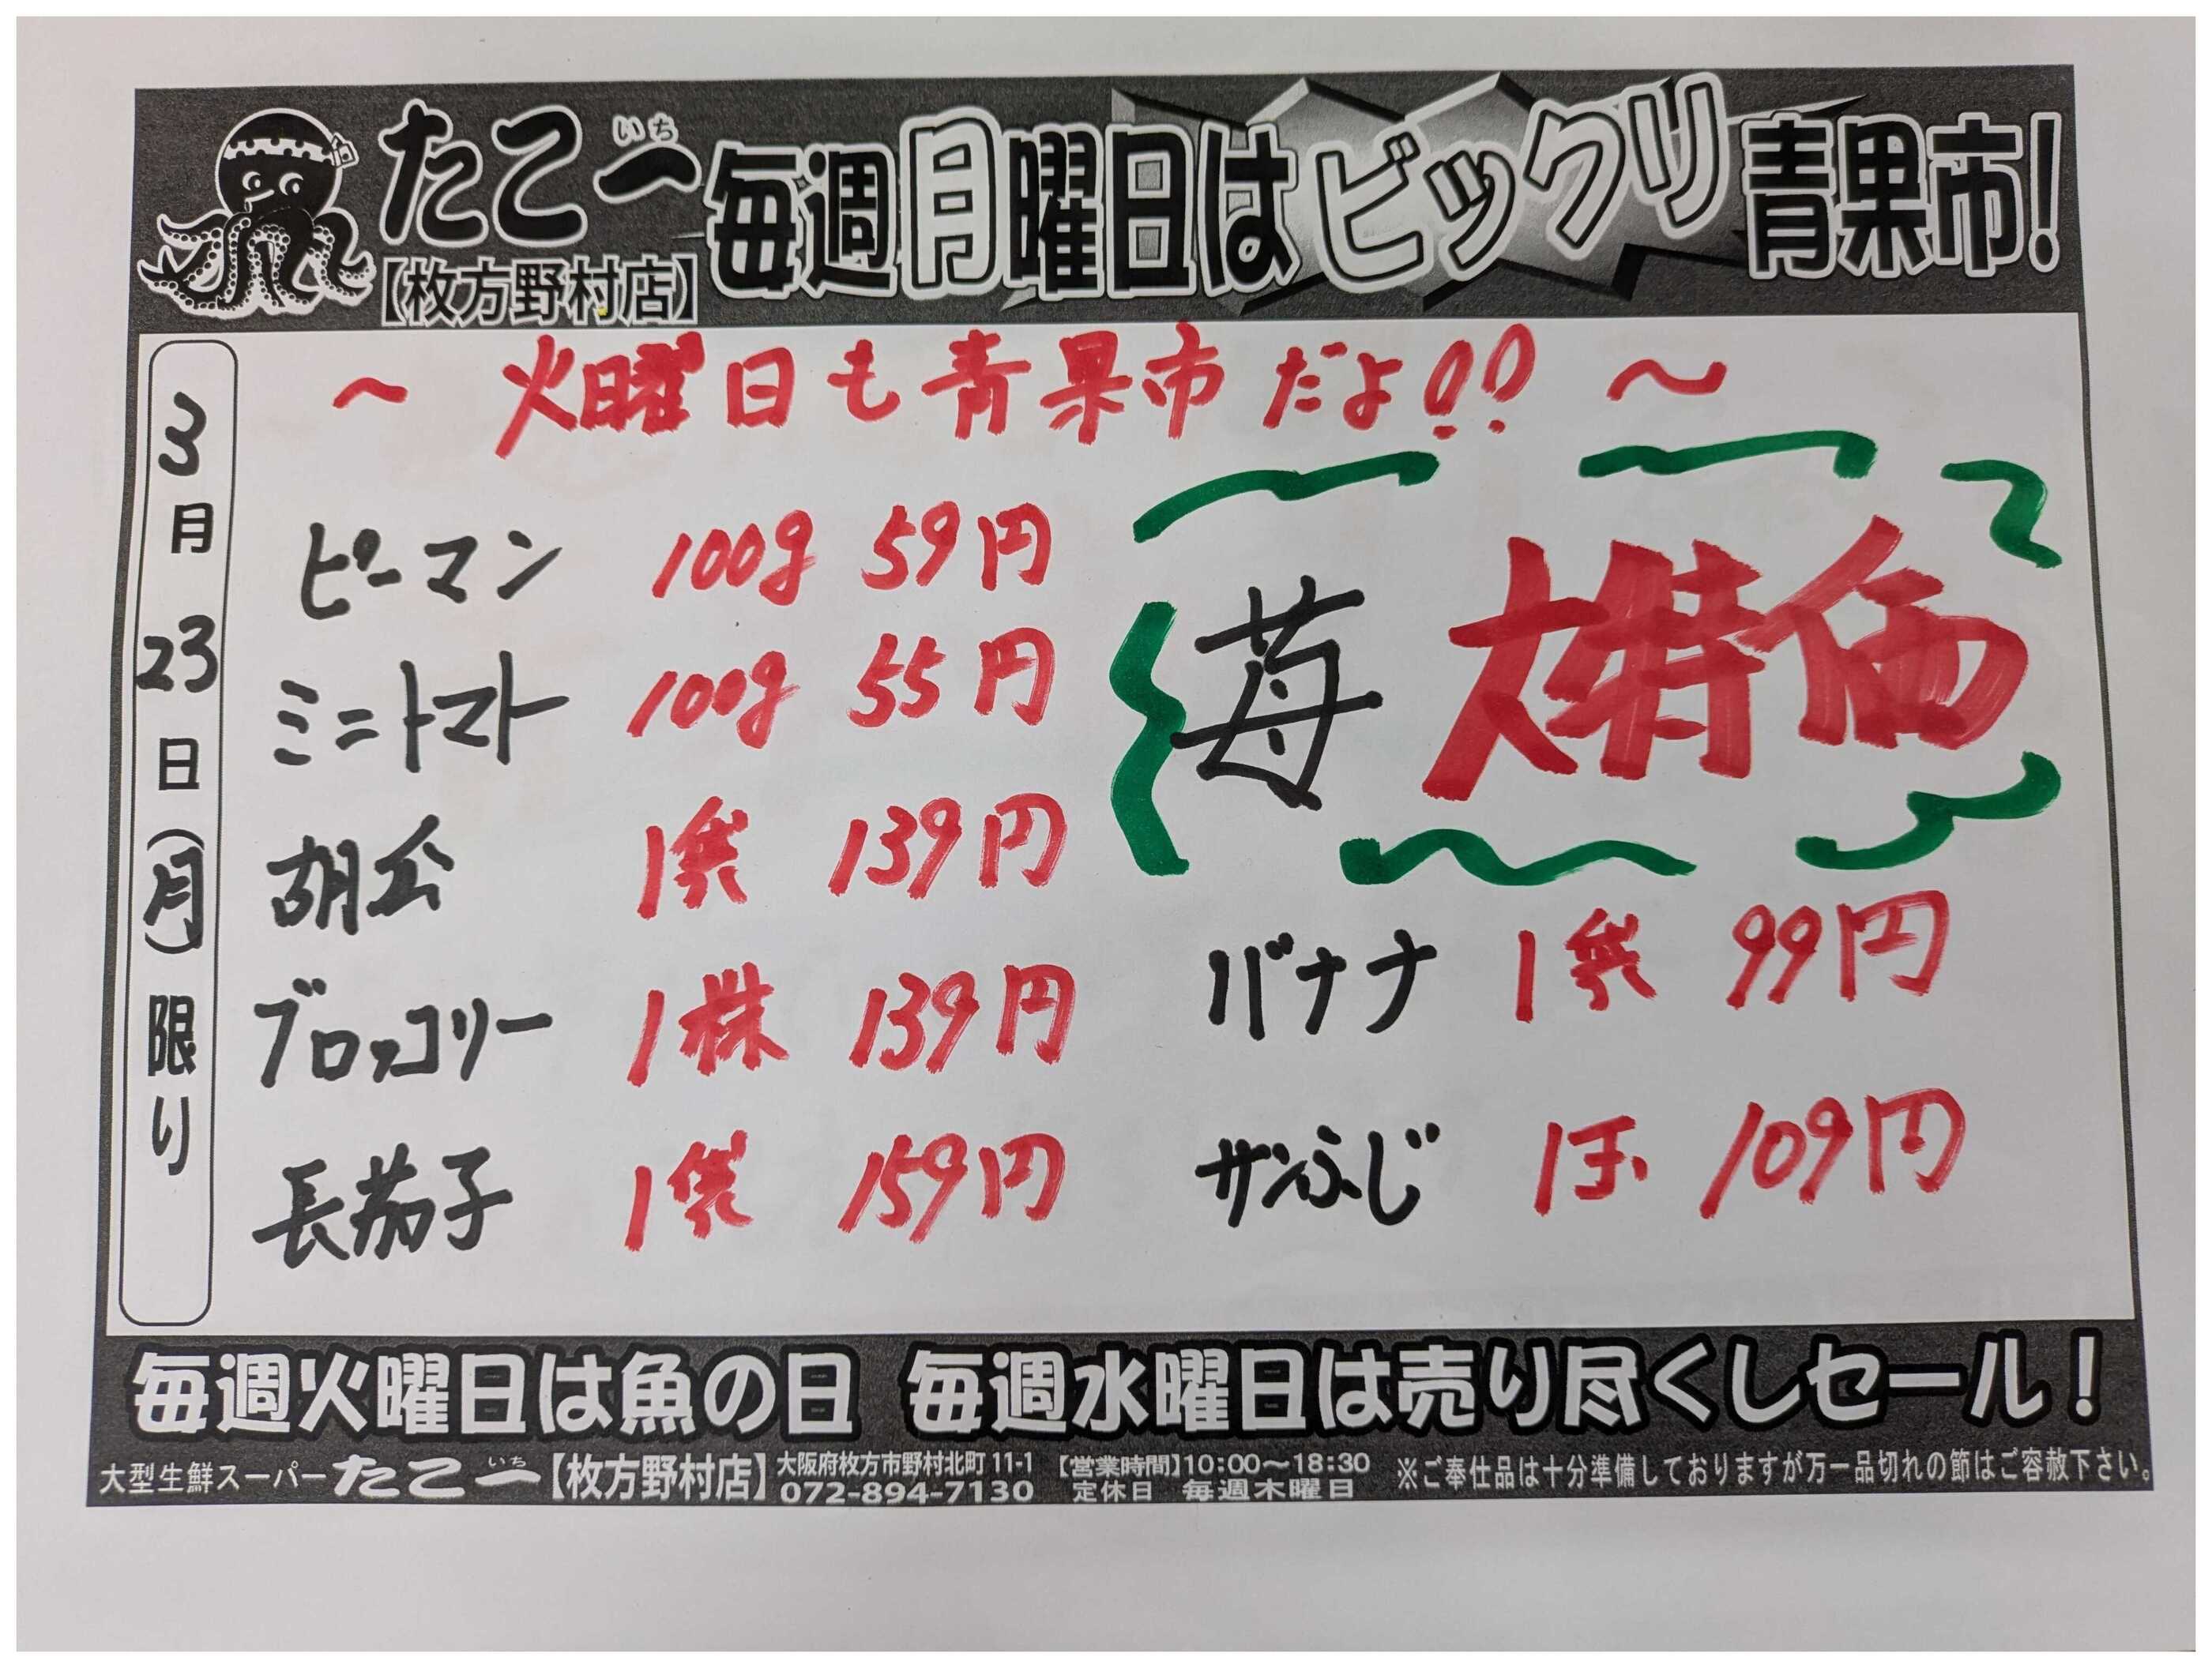 たこ一 毎週月曜日はビックリ青果市!
いち
【枚方野村店】
3月23日(月)限り
〜 火曜日も青果市だよ!! 〜
ピーマン 100g 59円
ミニトマト 100g 55円
胡瓜 1袋 139円
ブロッコリー 1株 139円
長茄子 1袋 159円
苺 大特価
バナナ 1袋 99円
サンふじ 1玉 109円
毎週火曜日は魚の日 毎週水曜日は売り尽くしセール!
大型生鮮スーパー たこ一【枚方野村店】
いち
大阪府枚方市野村北町 11-1
072-894-7130
【営業時間】10:00〜18:30
定休日 毎週木曜日
※ご奉仕品は十分準備しておりますが万一品切れの節はご容赦下さい。